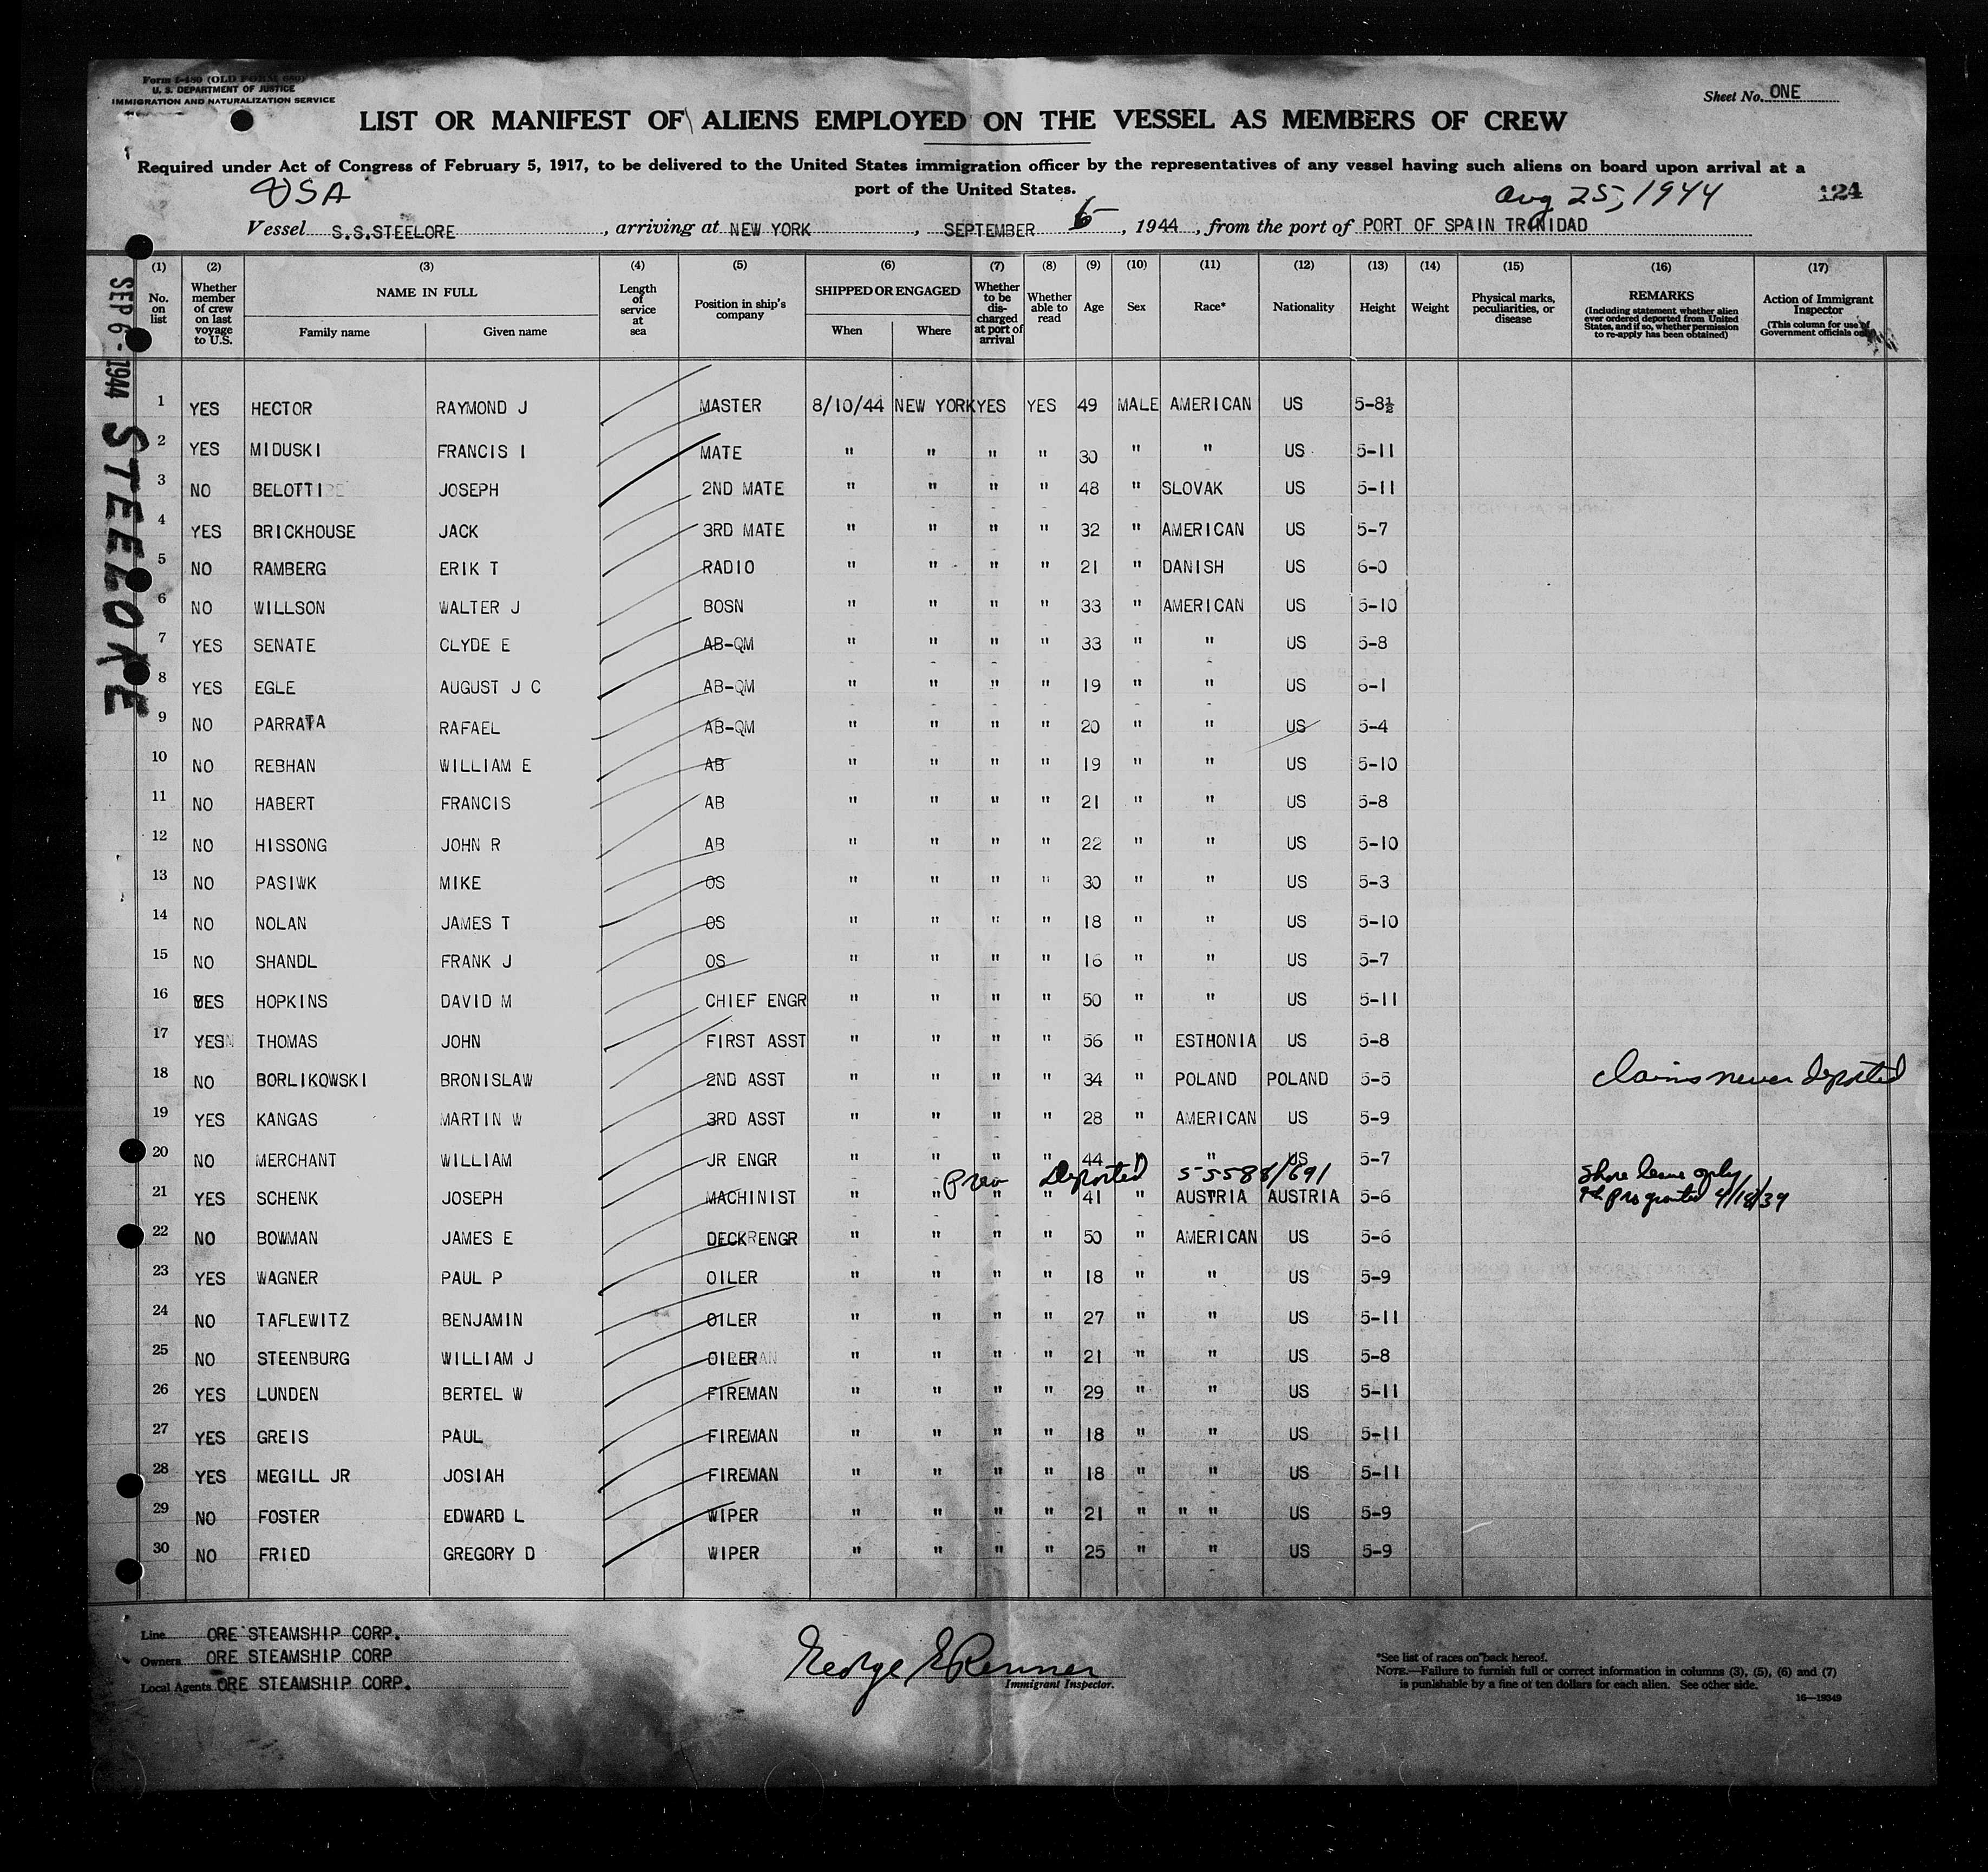 Form I-480 (OLD FORM 689)
U. S. DEPARTMENT OF JUSTICE
IMMIGRATION AND NATURALIZATION SERVICE
Sheet No. ONE
LIST OR MANIFEST OF ALIENS EMPLOYED ON THE VESSEL AS MEMBERS OF CREW
Required under Act of Congress of February 5, 1917, to be delivered to the United States immigration officer by the representatives of any vessel having such aliens on board upon arrival at a
port of the United States.
USA
Aug 25, 1944
124
Vessel S.S.STEELORE, arriving at NEW YORK, SEPTEMBER 6, 1944, from the port of PORT OF SPAIN TRINIDAD
SEP 6 - 1944 STEELORE
(1) (2) (3) (4) (5) (6) (7) (8) (9) (10) (11) (12) (13) (14) (15) (16) (17)
No. on list
Whether member of crew on last voyage to U.S.
NAME IN FULL
Family name
Given name
Length of service at sea
Position in ship's company
SHIPPED OR ENGAGED
When
Where
Whether to be discharged at port of arrival
Whether able to read
Age
Sex
Race*
Nationality
Height
Weight
Physical marks, peculiarities, or disease
REMARKS
(Including statement whether alien ever ordered deported from United States, and if so, whether permission to re-apply has been obtained)
Action of Immigrant Inspector
(This column for use of Government officials only)
1 YES HECTOR RAYMOND J MASTER 8/10/44 NEW YORK YES YES 49 MALE AMERICAN US 5-8½
2 YES MIDUSKI FRANCIS I MATE " " " " 30 " " US 5-11
3 NO BELOTTI JOSEPH 2ND MATE " " " " 48 " SLOVAK US 5-11
4 YES BRICKHOUSE JACK 3RD MATE " " " " 32 " AMERICAN US 5-7
5 NO RAMBERG ERIK T RADIO " " " " 21 " DANISH US 6-0
6 NO WILLSON WALTER J BOSN " " " " 33 " AMERICAN US 5-10
7 YES SENATE CLYDE E AB-QM " " " " 33 " " US 5-8
8 YES EGLE AUGUST J C AB-QM " " " " 19 " " US 6-1
9 NO PARRATA RAFAEL AB-QM " " " " 20 " " US 5-4
10 NO REBHAN WILLIAM E AB " " " " 19 " " US 5-10
11 NO HABERT FRANCIS AB " " " " 21 " " US 5-8
12 NO HISSONG JOHN R AB " " " " 22 " " US 5-10
13 NO PASIWK MIKE OS " " " " 30 " " US 5-3
14 NO NOLAN JAMES T OS " " " " 18 " " US 5-10
15 NO SHANDL FRANK J OS " " " " 16 " " US 5-7
16 YES HOPKINS DAVID M CHIEF ENGR " " " " 50 " " US 5-11
17 YES THOMAS JOHN FIRST ASST " " " " 56 " ESTHONIA US 5-8
18 NO BORLIKOWSKI BRONISLAW 2ND ASST " " " " 34 " POLAND POLAND 5-5 Claims never deported
19 YES KANGAS MARTIN W 3RD ASST " " " " 28 " AMERICAN US 5-9
20 NO MERCHANT WILLIAM JR ENGR " " " " 44 " " US 5-7
Prev Deported 55588/691 Shore leave only
21 YES SCHENK JOSEPH MACHINIST " " " " 41 " AUSTRIA AUSTRIA 5-6 granted 4/18/39
22 NO BOWMAN JAMES E DECK ENGR " " " " 50 " AMERICAN US 5-6
23 YES WAGNER PAUL P OILER " " " " 18 " " US 5-9
24 NO TAFLEWITZ BENJAMIN OILER " " " " 27 " " US 5-11
25 NO STEENBURG WILLIAM J OILER " " " " 21 " " US 5-8
26 YES LUNDEN BERTEL W FIREMAN " " " " 29 " " US 5-11
27 YES GREIS PAUL FIREMAN " " " " 18 " " US 5-11
28 YES MEGILL JR JOSIAH FIREMAN " " " " 18 " " US 5-11
29 NO FOSTER EDWARD L WIPER " " " " 21 " " " US 5-9
30 NO FRIED GREGORY D WIPER " " " " 25 " " US 5-9
Line ORE STEAMSHIP CORP.
Owners ORE STEAMSHIP CORP
Local Agents ORE STEAMSHIP CORP.
George E Renner
Immigrant Inspector.
*See list of races on back hereof.
NOTE.—Failure to furnish full or correct information in columns (3), (5), (6) and (7)
is punishable by a fine of ten dollars for each alien. See other side.
16—19349